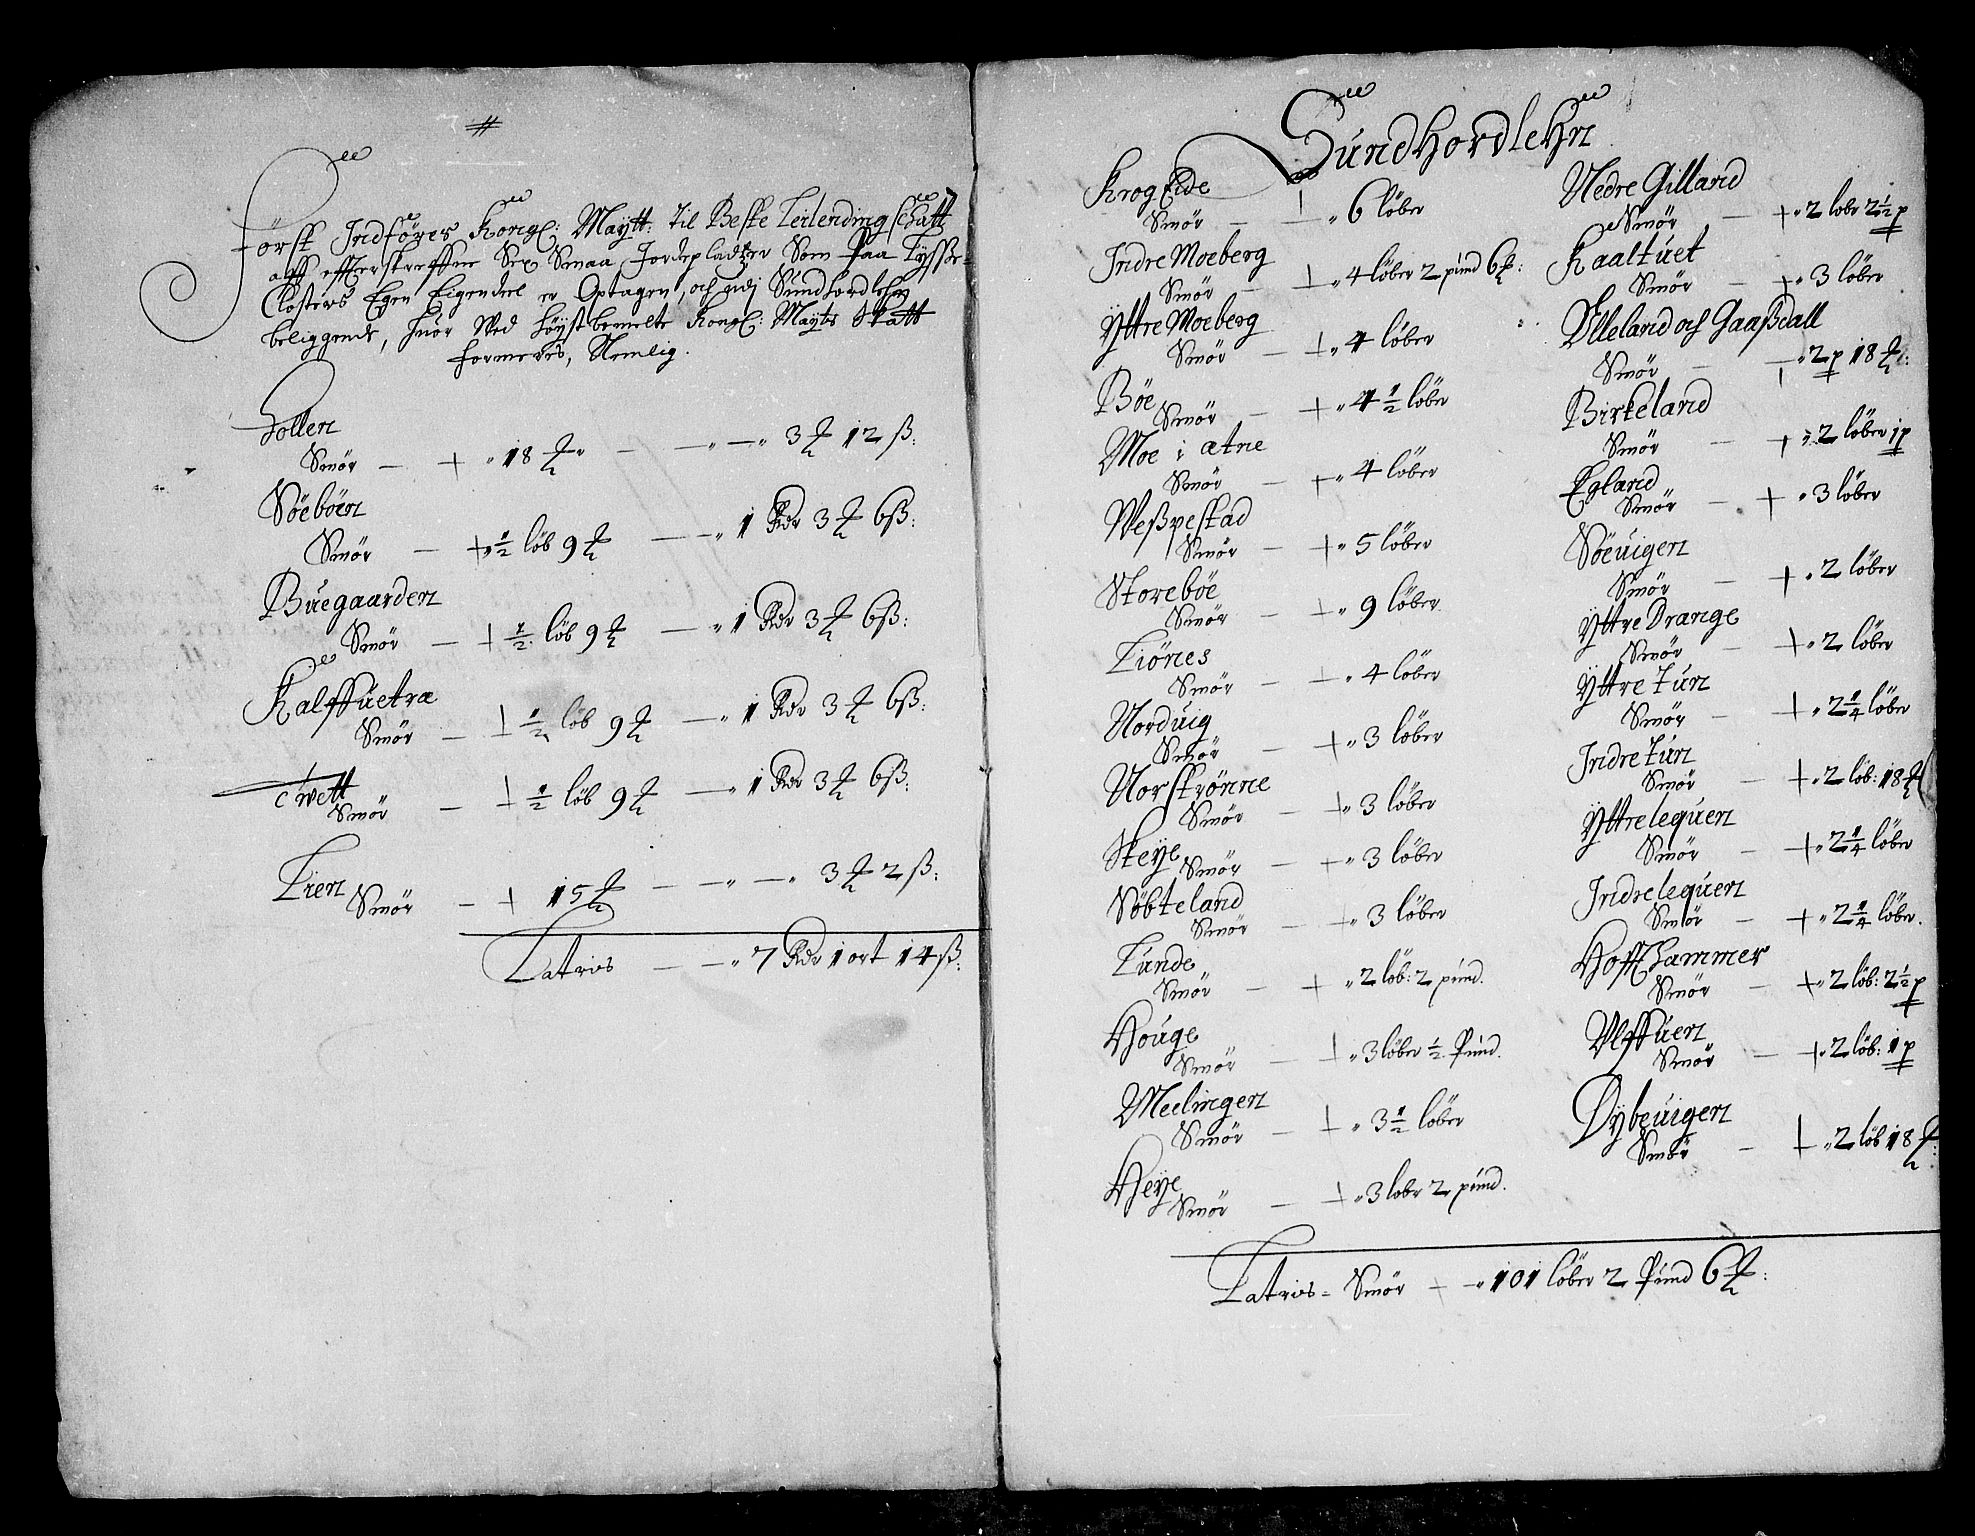 #
Först Indföres Kongl: Maytt: til Beste Leilending schatt
aff effterskreffne Sex Smaa Jordepladtzer Som Paa Lysse-
Closters Egen Eigendeel er Optagen, och udj Sundhordlehn
beliggende, huor Wed höystbemelte Kongl: Mayts Skatt
formeres, Nemlig.
Hollen
Smör — + " 18 ℔ " — — " — " 3 ℔ 12 ß:
Söeböen
Smör — + " ½ löb 9 ℔ — " 1 Rdr 3 ℔ 6 ß:
Buegaarden
Smör — + ½ löb 9 ℔ — " 1 Rdr 3 ℔ 6 ß:
Kalffuetræ
Smör — + ½ löb 9 ℔ — " 1 Rdr 3 ℔ 6 ß:
Twett
Smör — + ½ löb 9 ℔ — " 1 Rdr 3 ℔ 6 ß:
Lien
Smör — + 15 ℔ — — " — " 3 ℔ 2 ß:
Latris — — " 7 Rdr 1 ort 14 ß:
Sundhordlehn
Krog Eide
Smör — + " 6 löber
Indre Moeberg
Smör — + " 4 löber 2 pund 6 ℔:
Yttre Moeberg
Smör — + " 4 löber
Böe
Smör — + " 4 ½ löber
Moe i ætne
Smör — + " 4 löber
Weßpestad
Smör — + " 5 löber
Storeböe
Smör — + " 9 löber
Liönes
Smör — — " 4 löber
Norduig
Smör — + " 3 löber
Norströnne
Smör — + " 3 löber
Skeye
Smör — + " 3 löber
Söbteland
Smör — + " 3 löber
Lunde
Smör — + " 2 löb: 2 pund.
Houge
Smör — + " 3 löber ½ Pund.
Meelingen
Smör — + " 3 ½ löber
Heye
Smör — + " 3 lober 2 pund.
Nedre Gilland
Smör — + " 2 lober 2 ½ p
Kaaltuet
Smör — + " 3 löber
Ølleland och Gaaßdall
Smör — + " 2 p 18 ℔:
Birkeland
Smör — + " 2 löber 1 p
Egland
Smör — + " 3 löber
Söeuigen
Smör — + " 2 löber
Yttre Drange
Smör — + " 2 löber
Yttre Tun
Smör — + " 2 ¼ löber
Indre Tun
Smör — + " 2 löb: 18 ℔
Yttre lequen
Smör — + " 2 ¼ löber
Indre lequen
Smör — + " 2 ¼ löber.
Hoffhammer
Smör — + " 2 löb: 2 ½ p
Ulffuen
Smör — + " 2 löb: 1 p
Dybeuigen
Smör — + " 2 löb 18 ℔:
Latris = Smör + — " 101 löber 2 Pund 6 ℔: